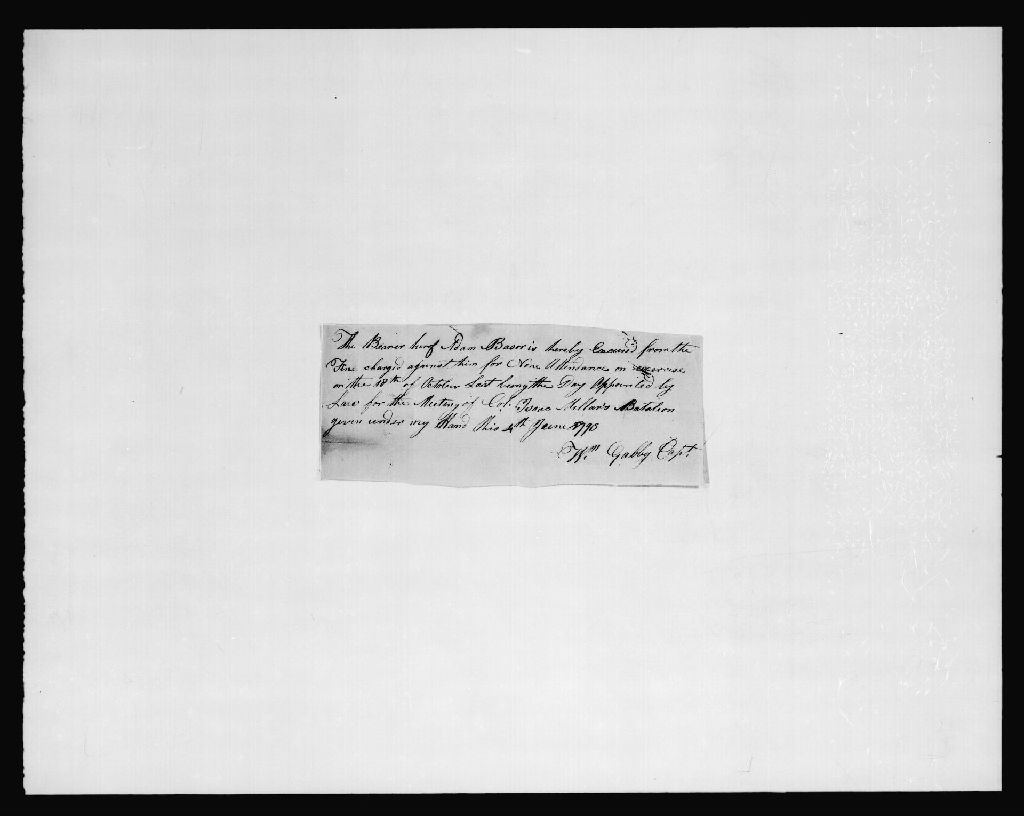 The Bearer hereof Adam Baver is thereby Excused from the
Fine charg'd against him for None Attendance on exercise
on the 18th of October Last being the Day Appointed by
Law for the Meeting of Col. Isaac Mellars Batalion
given under my Hand this 4th June 1790
Wm Gabby Capt